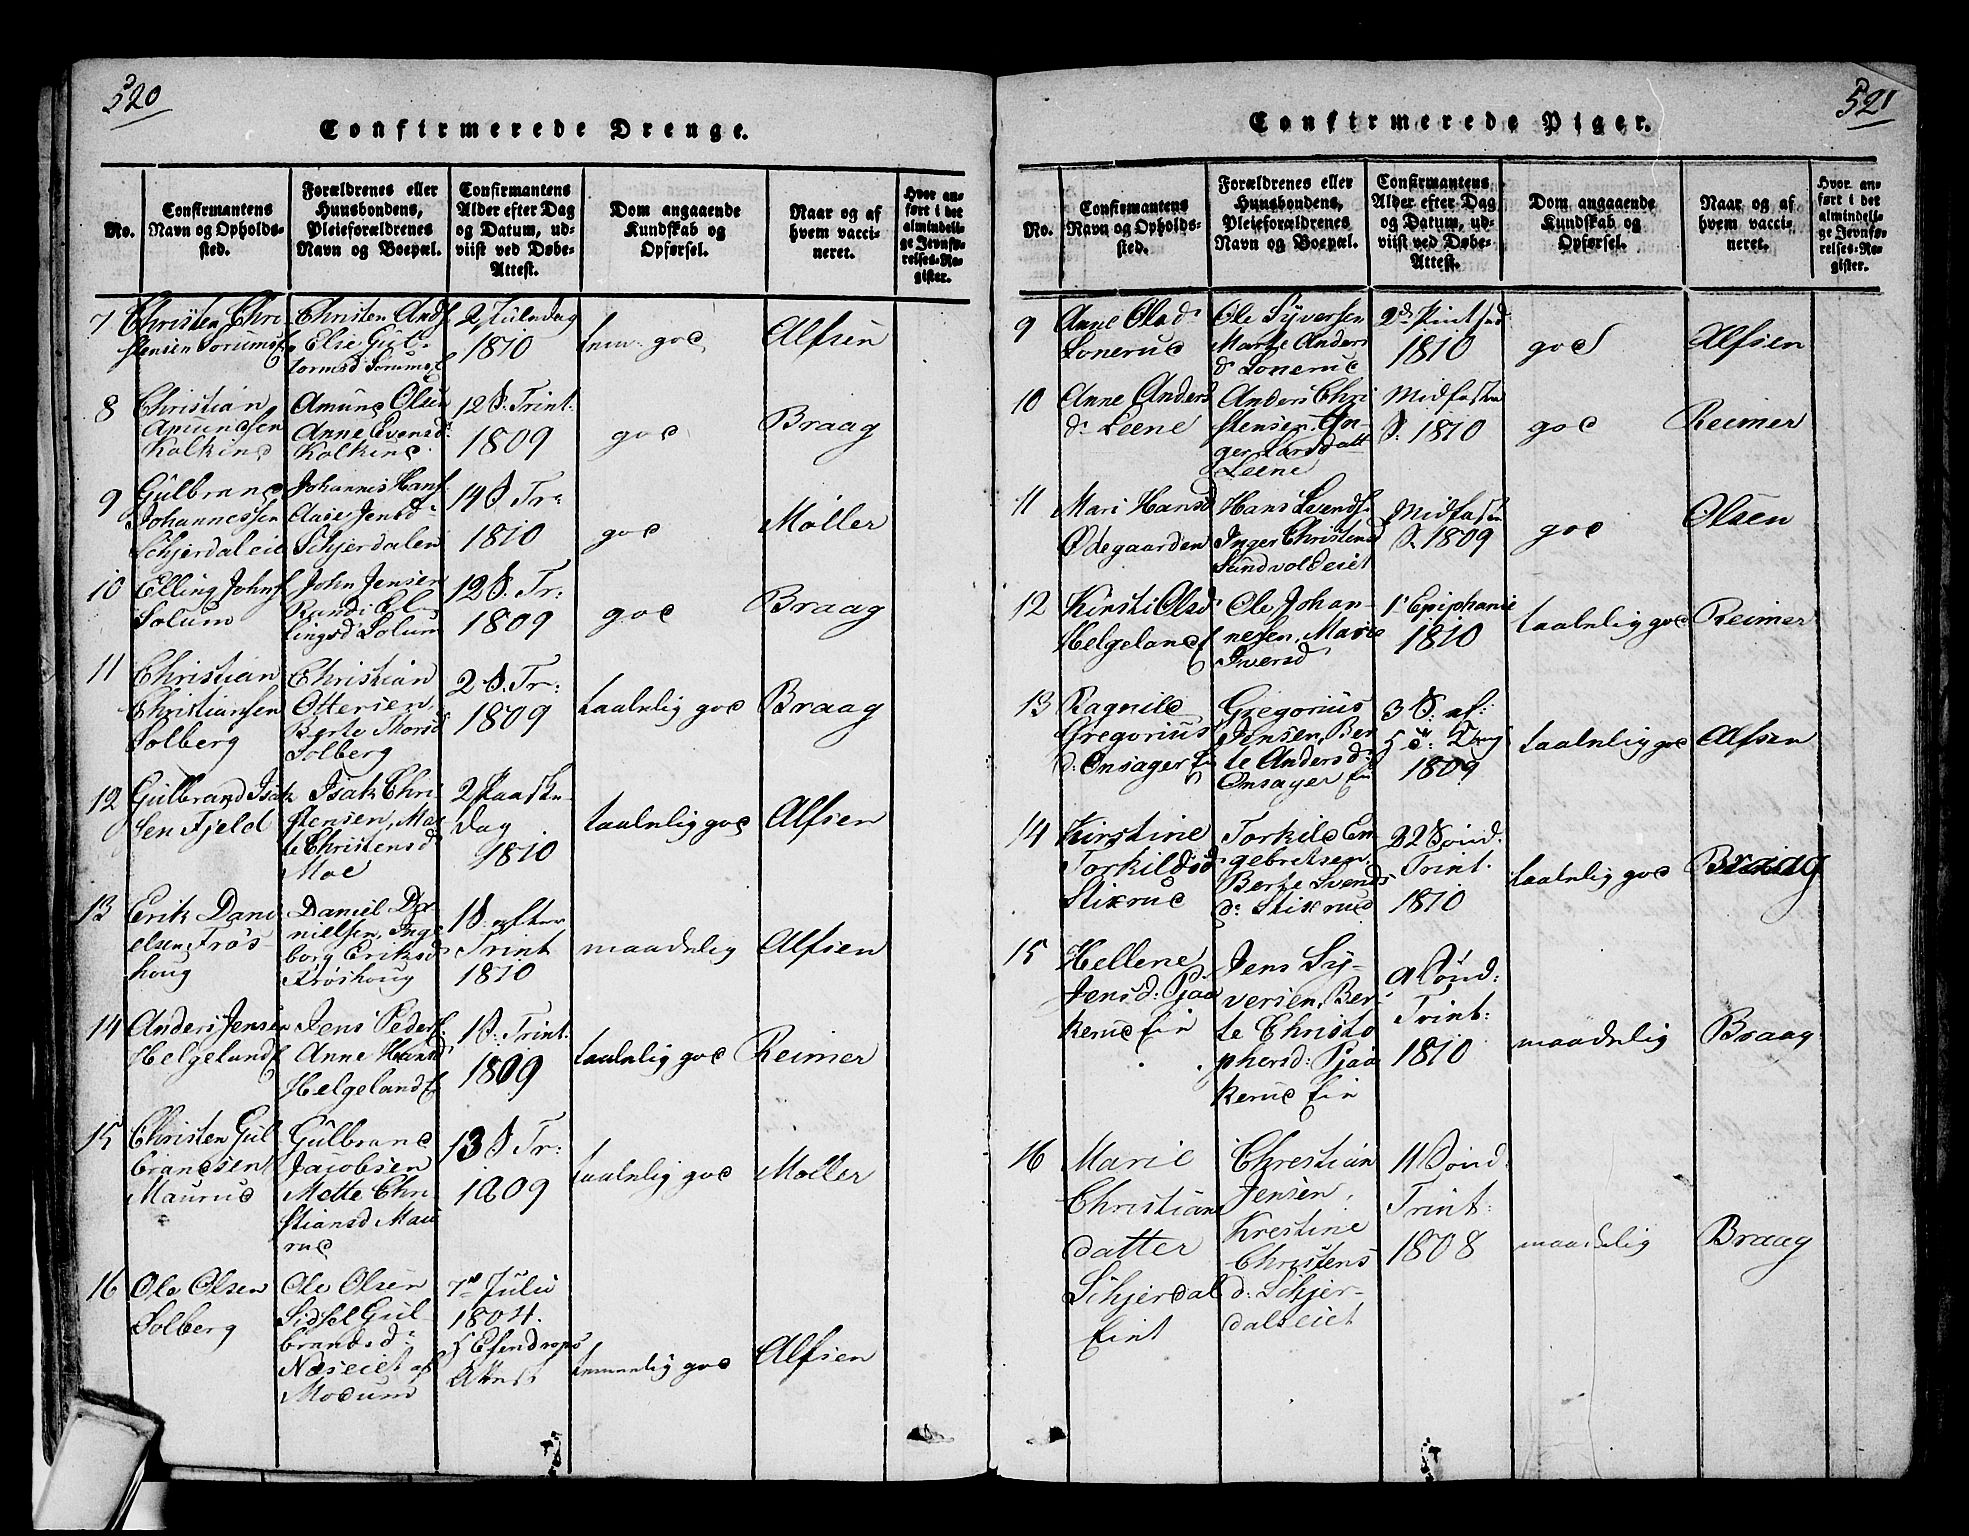 520
Confirmerede Drenge.
No.
Confirmantens
Navn og Opholds-
sted.
Forældrenes eller
Huusbondens,
Pleieforældrenes
Navn og Boepæl.
Confirmantens
Alder efter Dag
og Datum, ud-
viist ved Døbe-
Attest.
Dom angaaende
Kundskab og
Opførsel.
Naar og af
hvem vacci-
neret.
Hvor an-
ført i det
almindeli-
ge Jevnfø-
relses-Re-
gister.
7
Christen Chri
stensen
Christen
Else Gul-
tormsd
2 Juledag
1810
god
Alfsen
8
Christian
Amundsen
Kolkind
Amund Olsen
Anne Evensd
Kolkind
12 S. Trint.
1809
god
Braag
9
Gulbrand
Johannessen
Schjerdaleie
Johannes Hans
Aase Jensd
Schjerdalen
14 S. Tr:
1810
god
Møller
10
Elling Johns
Solum
John Jensen
Randi El
lingsd Solum
12 S. Tr:
1809
god
Braag
11
Christian
Christiansen
Solberg
Christian
Ottersen,
Berte Thorsd
Solberg
2 S. Tr:
1809
taalelig god
Braag
12
Gulbrand Isak
sen Fjeld
Isak Chri
stensen, Mar
te Christensd
Moe
2 Paaske
Dag
1810
taalelig god
Alfsen
13
Erik Dani
elsen Frøs-
houg
Daniel Da
nielsen, Inge
borg Eriksd
Frøshoug
1 S. efter
Trint
1810
maadelig
Alfsen
14
Anders Jensen
Helgeland
Jens Peders
Anne Hansd
Helgeland
1 S. Trint.
1809
taalelig god
Reimer
15
Christen Gul
brandsen
Maurud
Gulbrand
Jacobsen
Mette Chri
stiansd Mau
rud
13 S. Tr:
1809
taalelig god
Møller
16
Ole Olsen
Solberg
Ole Olsen
Sidsel Gul
brandsd
Næseiet af
Modum
7de Julii
1804.
god
Alfsen
521
Confirmerede Piger.
No.
Confirmantens
Navn og Opholds-
sted.
Forældrenes eller
Huusbondens,
Pleieforældrenes
Navn og Boepæl.
Confirmantens
Alder efter Dag
og Datum, ud-
viist ved Døbe-
Attest.
Dom angaaende
Kundskab og
Opførsel.
Naar og af
hvem vacci-
neret.
Hvor an-
ført i det
almindeli-
ge Jevnfø-
relses-Re-
gister.
9
Anne Olsd
Lonerud
Ole Syversen
Marte Anders
d Lonerud
1810
god
Alfsen
10
Anne Anders
d: Leene
Anders Chri
stensen, In-
ger Larsdatt
Leene
Midfaste
S. 1810
god
Reimer
11
Mari Hansd
Ødegaarden
Hans Svends
Inger Christensd
Sundvoldeiet
Midfaste
S. 1809
god
Olsen
12
Kirsti Olsd
Helgeland
Ole Johan-
nesen, Marie
Iversd
1 Epiphanie
1810
taalelig god
Reimer
13
Ragnild
Gregorius
d: Onsager Ei
Gregorius
Jensen, Ber
te Andersd:
Onsager Ei
3 S: af:
1809
taalelig god
Alfsen
14
Kirstine
Torkildsd
Stixrud
Torkild En
gebretsen,
Berte Svends
d: Stixrud
22 Sønd:
Trint.
1810
taalelig god
Braag
15
Hellene
Jensd: Pjaa
kerud Ein
Jens Sy-
versen, Ber
te Christo
phersd: Pjaa
kerud Ein
9 Sønd:
Trint:
1810
maadelig
Braag
16
Marie
Christians
datter
Schjerdal
Eint
Christian
Jensen,
Krestine
Christens
d: Schjer-
dalseiet
11 Sønd.
Trint:
1808
maadelig
Braag